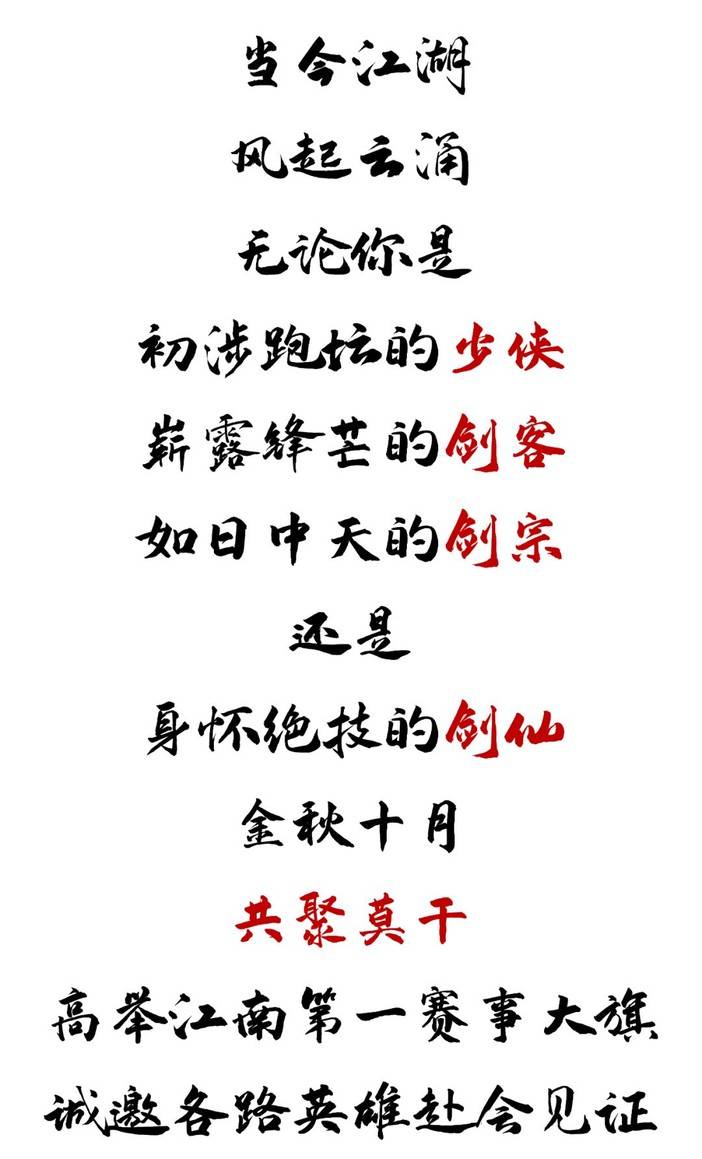 当今江湖
风起云涌
无论你是
初涉跑坛的少侠
崭露锋芒的剑客
如日中天的剑宗
还是
身怀绝技的剑仙
金秋十月
共聚莫干
高举江南第一赛事大旗
诚邀各路英雄赴会见证